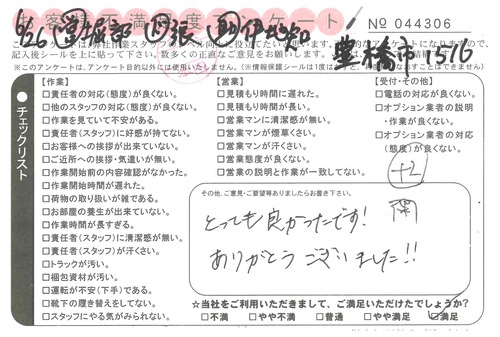 お客様満足度アンケート
No 044306
9/26
豊橋市 1515
※このアンケートは、アンケート目的以外には使用いたしません。
チェックリスト
【作業】
□責任者の対応(態度)が良くない。
□他のスタッフの対応(態度)が良くない。
□作業を見ていて不安がある。
□責任者(スタッフ)に好感が持てない。
□お客様への挨拶が出来ていない。
□ご近所への挨拶・気遣いが無い。
□作業開始前の内容確認がなかった。
□作業開始時間が遅れた。
□荷物の取り扱いが雑である。
□お部屋の養生が出来ていない。
□作業時間が長すぎる。
□責任者(スタッフ)に清潔感が無い。
□責任者(スタッフ)が汗くさい。
□トラックが汚い。
□梱包資材が汚い。
□運転が不安(下手)である。
□靴下の履き替えをしてない。
□スタッフにやる気がみられない。
【営業】
□見積もり時間に遅れた。
□見積もり時間が長い。
□営業マンに清潔感が無い。
□営業マンが煙草くさい。
□営業マンが汗くさい。
□営業態度が良くない。
□営業の説明と作業が一致してない。
【受付・その他】
□電話の対応が良くない。
□オプション業者の説明
・作業が良くない。
□オプション業者の対応
(態度)が良くない。
+2
その他、ご意見・ご要望等ありましたらお書き下さい。
とっても良かったです!
ありがとうございました!!
☆当社をご利用いただきまして、ご満足いただけたでしょうか?
□不満 □やや不満 □普通 □やや満足 □満足